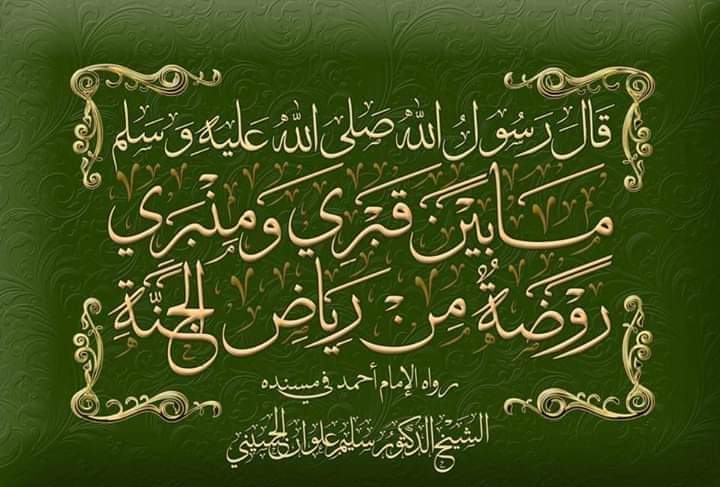 قَالَ رَسُولُ اللهِ صَلَى اللهُ عَلَيْهِ وَسَلَم
مَا بَيْنَ قَبْرِي وَمِنْبَرِي
رَوْضَةٌ مِنْ رِيَاضِ الجَنَّةِ
رواه الإمام أحمد في مسنده
الشيخ الدكتور سليم علوان الحسيني